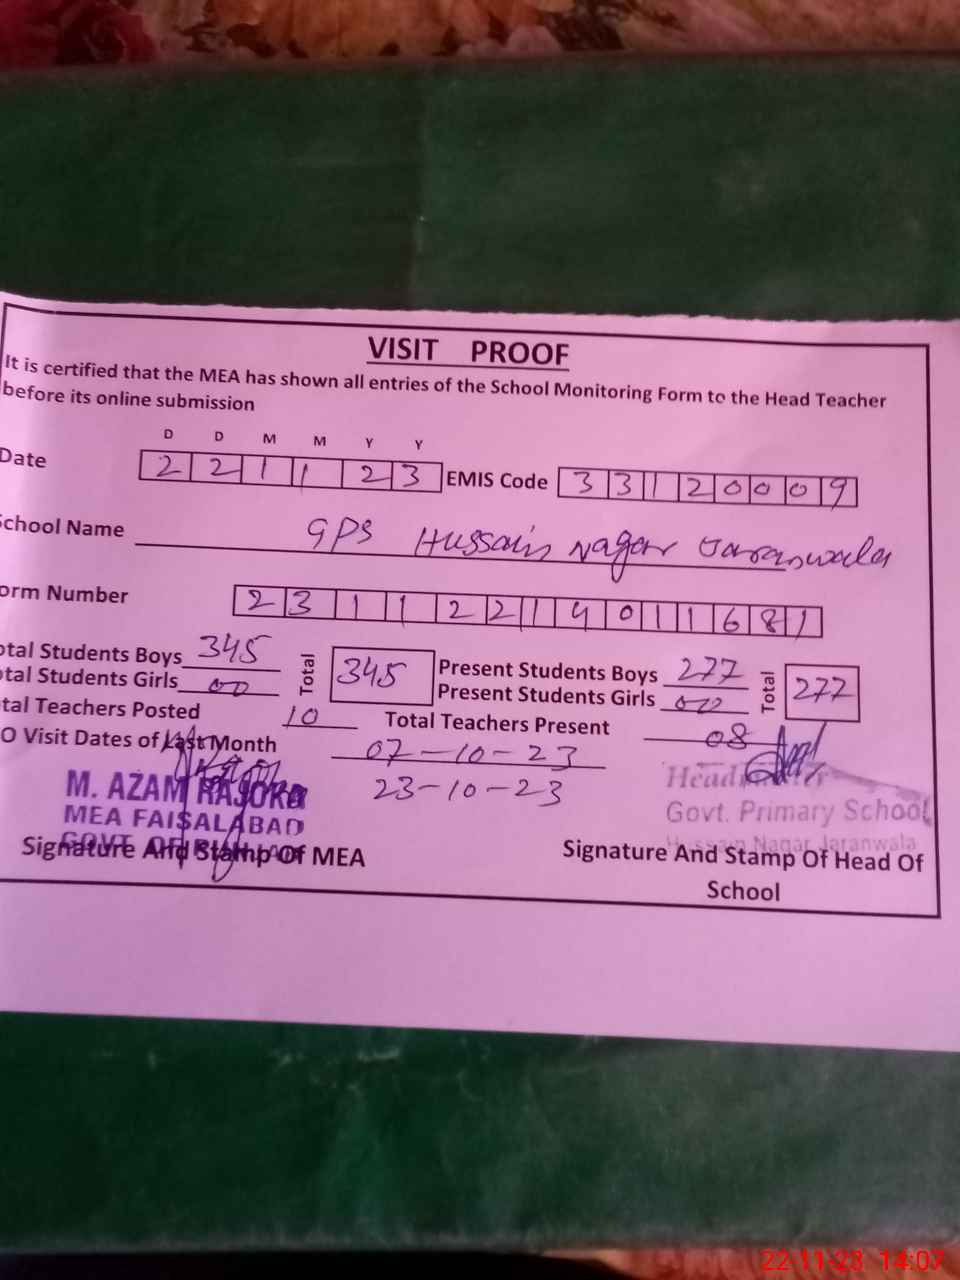 VISIT PROOF
It is certified that the MEA has shown all entries of the School Monitoring Form to the Head Teacher
before its online submission
D D M M Y Y
Date 2 2 1 1 2 3 EMIS Code 3 3 1 2 0 0 0 9
School Name GPS Hussain Nagar Jaranwala
orm Number 2 3 1 1 2 2 1 4 0 1 1 6 8 1
otal Students Boys 345 Total 345 Present Students Boys 277 Total 277
otal Students Girls 00 Present Students Girls 00
tal Teachers Posted 10 Total Teachers Present 08
O Visit Dates of Last Month 07-10-23
23-10-23
M. AZAM RAJOKA
MEA FAISALABAD
GOVT OF
Signature And Stamp Of MEA
Head
Govt. Primary School
Hussain Nagar Jaranwala
Signature And Stamp Of Head Of
School
22-11-23 14:07